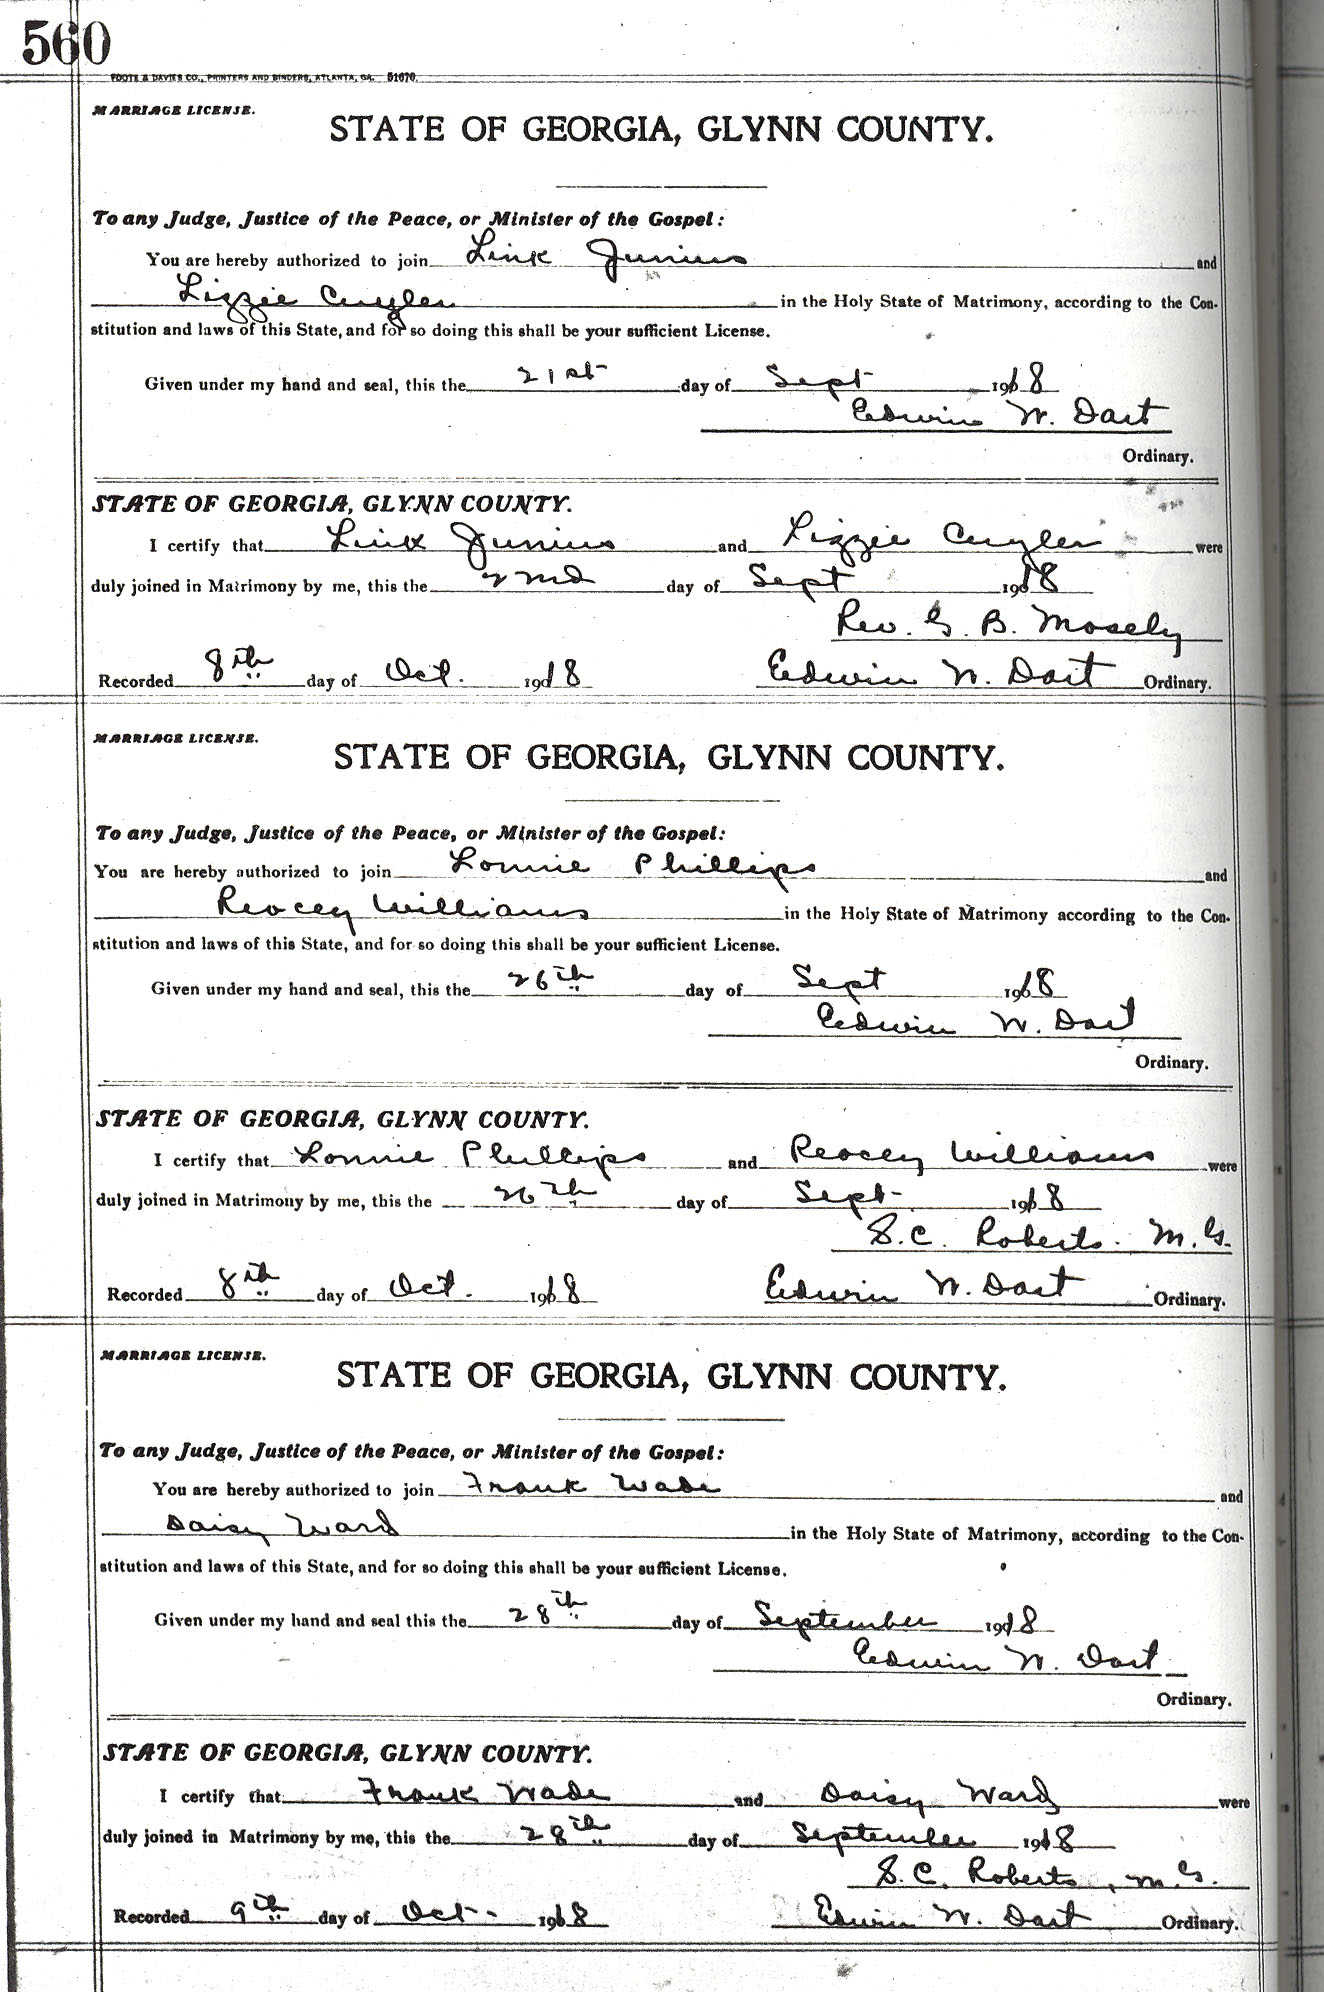 560
FOOTE & DAVIES CO., PRINTERS AND BINDERS, ATLANTA, GA. 51670.
MARRIAGE LICENSE.
STATE OF GEORGIA, GLYNN COUNTY.
To any Judge, Justice of the Peace, or Minister of the Gospel:
You are hereby authorized to join Link Junius and
Lizzie Cuyler in the Holy State of Matrimony, according to the Con-
stitution and laws of this State, and for so doing this shall be your sufficient License.
Given under my hand and seal, this the 21st day of Sept 1918
Edwin W. Dart
Ordinary.
STATE OF GEORGIA, GLYNN COUNTY.
I certify that Link Junius and Lizzie Cuyler were
duly joined in Matrimony by me, this the 22nd day of Sept 1918
Rev. G. B. Mosely
Recorded 8th day of Oct. 1918 Edwin W. Dart Ordinary.
MARRIAGE LICENSE.
STATE OF GEORGIA, GLYNN COUNTY.
To any Judge, Justice of the Peace, or Minister of the Gospel:
You are hereby authorized to join Lonnie Phillips and
Reocey Williams in the Holy State of Matrimony according to the Con-
stitution and laws of this State, and for so doing this shall be your sufficient License.
Given under my hand and seal, this the 26th day of Sept 1918
Edwin W. Dart
Ordinary.
STATE OF GEORGIA, GLYNN COUNTY.
I certify that Lonnie Phillips and Reocey Williams were
duly joined in Matrimony by me, this the 26th day of Sept 1918
S. C. Roberts. M. G.
Recorded 8th day of Oct. 1918 Edwin W. Dart Ordinary.
MARRIAGE LICENSE.
STATE OF GEORGIA, GLYNN COUNTY.
To any Judge, Justice of the Peace, or Minister of the Gospel:
You are hereby authorized to join Frank Wade and
Daisy Ward in the Holy State of Matrimony, according to the Con-
stitution and laws of this State, and for so doing this shall be your sufficient License.
Given under my hand and seal this the 28th day of September 1918
Edwin W. Dart
Ordinary.
STATE OF GEORGIA, GLYNN COUNTY.
I certify that Frank Wade and Daisy Ward were
duly joined in Matrimony by me, this the 28th day of September 1918
S. C. Roberts, M. G.
Recorded 9th day of Oct- 1918 Edwin W. Dart Ordinary.